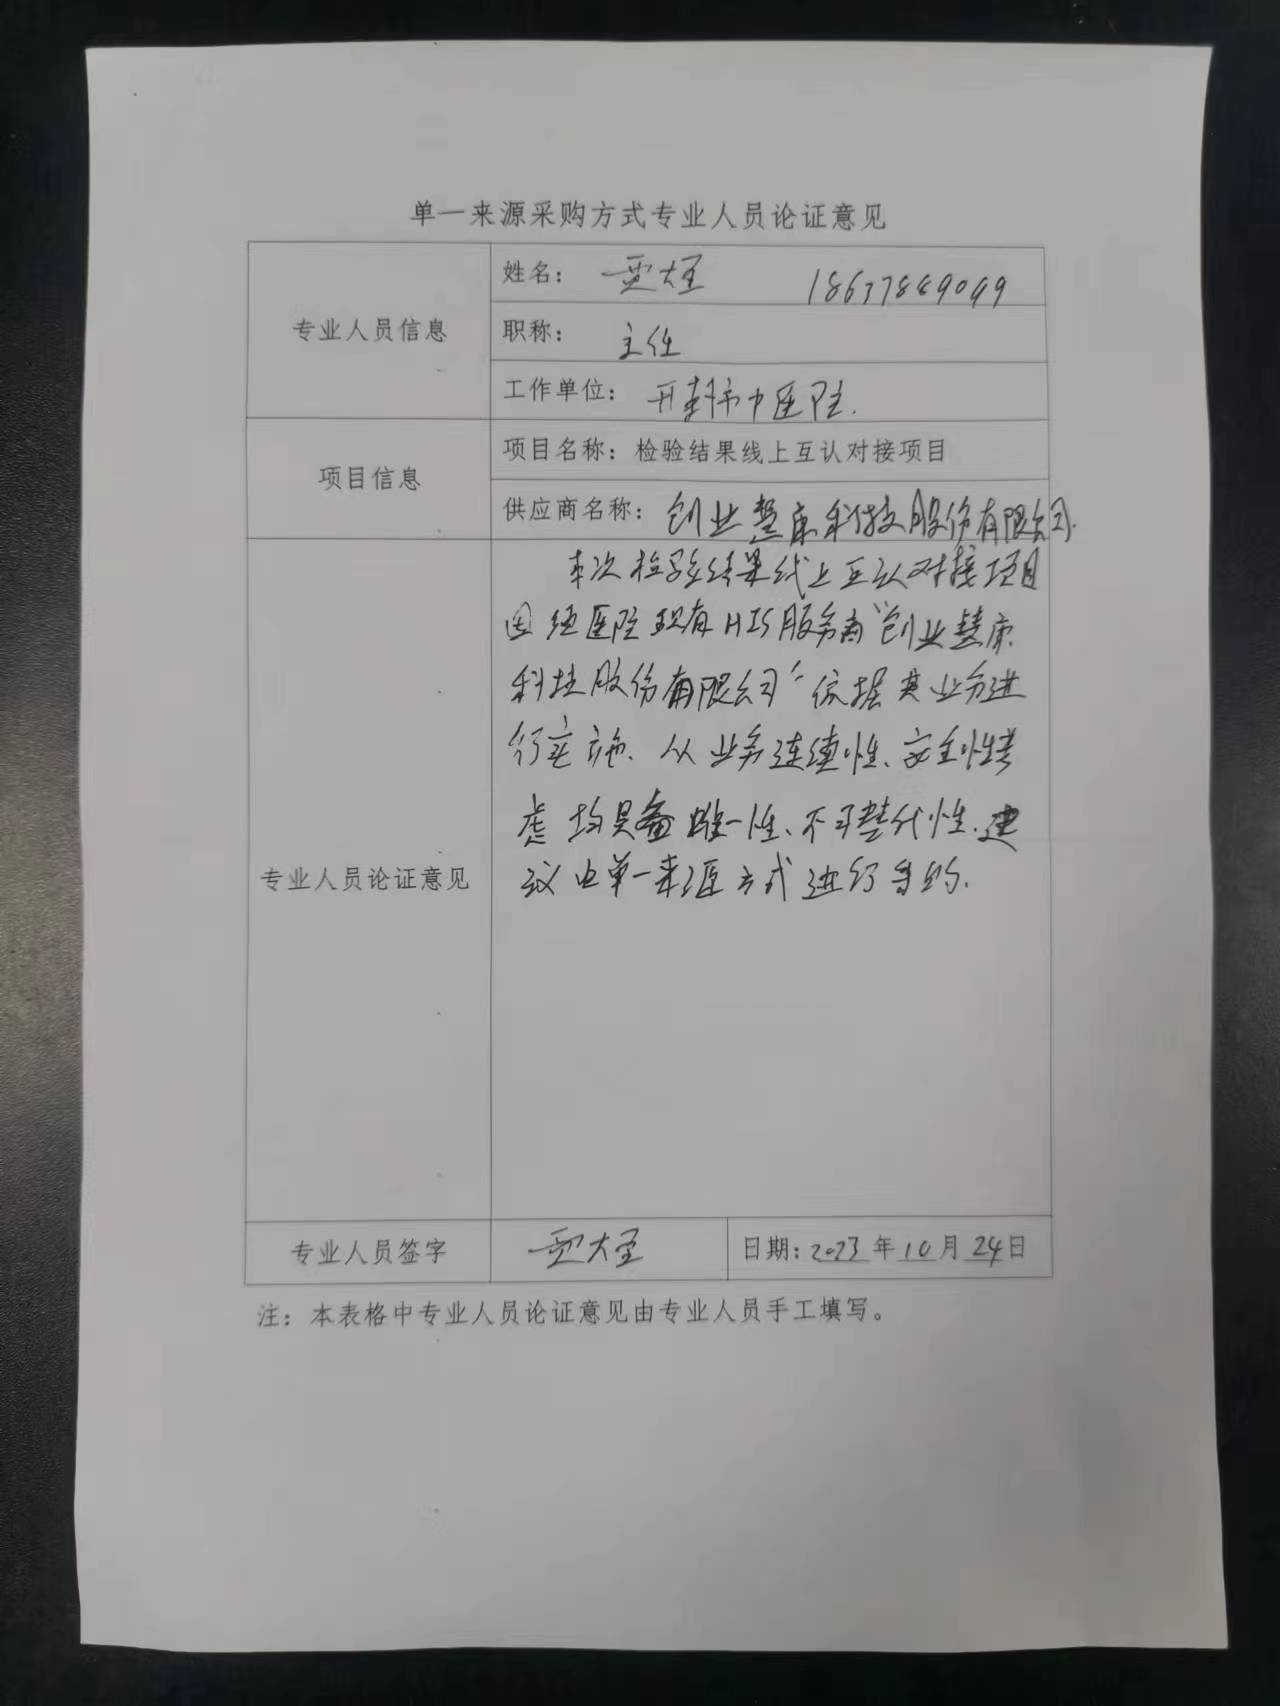 单一来源采购方式专业人员论证意见
专业人员信息
姓名： 贾大全 18637889099
职称： 主任
工作单位： 开封市中医院.
项目信息
项目名称：检验结果线上互认对接项目
供应商名称： 创业慧康科技股份有限公司.
专业人员论证意见
本次检验结果线上互认对接项目
医院现有HIS服务商“创业慧康
科技股份有限公司”依据其业务进
行实施. 从业务连续性、安全性考
虑均具备唯一性、不可替代性.建
议由单一来源方式进行采购.
专业人员签字
贾大全
日期：2023年10月24日
注：本表格中专业人员论证意见由专业人员手工填写。